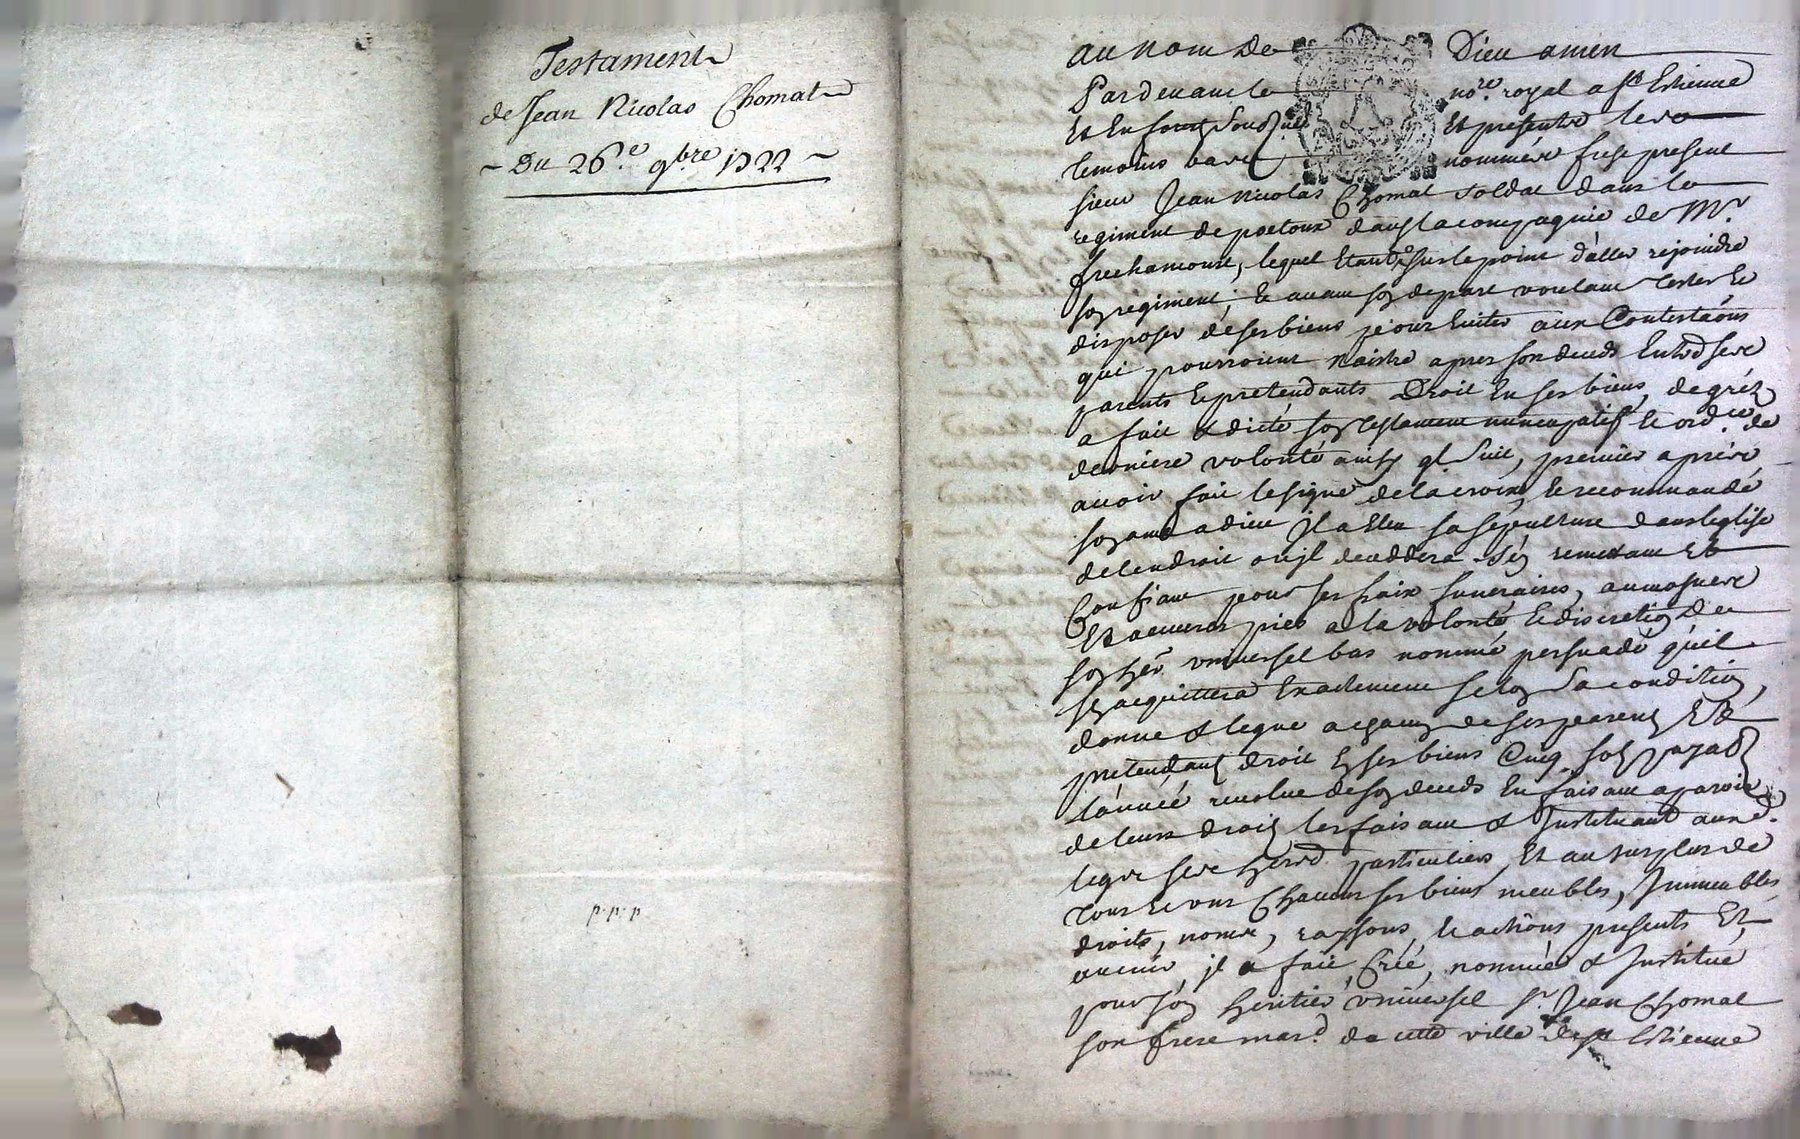 Testament
de Jean Nicolas Chomat
Du 26.e 9bre 1722
p.p.p
au nom de Dieu amen
Pardevant le nore. royal a st Estienne
Et En forest soussigné Et presents les
temoins bas nommés fust present
sieur Jean Nicolas Chomat soldat dans le
regiment de poetoux dans la compagnie de Mr.
frechamont, lequel Etant sur le point d'aller rejoindre
son regiment, & avant son depart voulant tester &
disposer de ses biens pour Eviter aux Contestaôns
qui pourroient naistre apres son deceds Entre ses
parents & pretendants Droit En ses biens, de gréz
a fait & dicté son testament nuncupatif & ordce. de
derniere volonté ainsy q. suit, premier apres
avoir fait le signe de la croix, & recommandé
son ame a dieu Jl a Eleu sa sepulture dans leglise
de lendroit ou jl deceddera sen remettant Et
Confiant pour ses fraix funeraires, aumosnes
Et oeuvres pies a la volonté & discretion de
son her. universel bas nommé persuadé qu'il
sen acquittera Exactement selon sa condition,
donne & legue a chacun de ses parents Et
pretendants droit En ses biens Cinq sols payables
lannée revolue de son deceds En faisant aparoir
de leurs droits les faisant & Jnstituant aux d.
legs ses hers particuliers, Et au surplus de
tous & uns Chacuns ses biens meubles, Jmmeubles
droits, noms, raysons & actions presents Et
avenir jl a fait, Créé, nommé & Jnstitué
pour son heritier universel sr. Jean Chomat
son frere mard. de cette ville de st Estienne